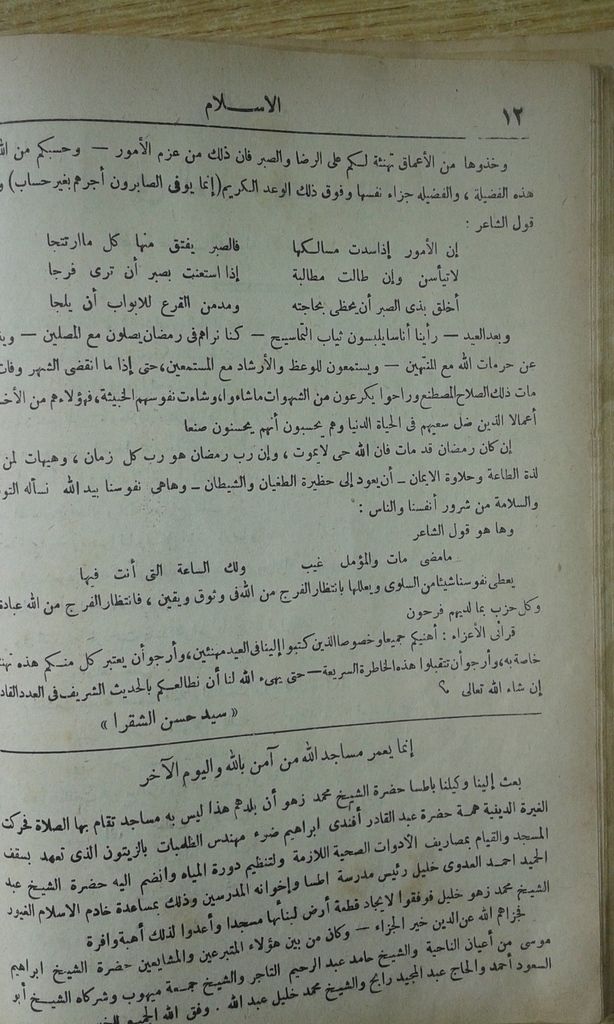 ١٢
الاسلام
وخذوها من الأعماق تهنئة لكم على الرضا والصبر فان ذلك من عزم الأمور — وحسبكم من
هذه الفضيلة ، والفضيله جزاء نفسها وفوق ذلك الوعد الكريم (إنما يوفى الصابرون أجرهم بغير حساب)
قول الشاعر :
إن الأمور إذا سدت مسالكها فالصبر يفتق منها كل ماارتتجا
لاتيأسن وإن طالت مطالبة إذا استعنت بصبر أن ترى فرجا
أخلق بذى الصبر أن يحظى بحاجته ومدمن القرع للابواب أن يلجا
وبعد العيد — رأينا أناسا يلبسون ثياب التماسيح — كنا نراهم فى رمضان يصلون مع المصلين —
عن حرمات الله مع المنتهين — ويستمعون للوعظ والأرشاد مع المستمعين، حتى إذا ما انقضى الشهر وفات
مات ذلك الصلاح المصطنع وراحوا يكرعون من الشهوات ماشاءوا، وشاءت نفوسهم الخبيثة، فهؤلاء هم من
أعمالا الذين ضل سعيهم فى الحياة الدنيا وهم يحسبون أنهم يحسنون صنعا
إن كان رمضان قد مات فان الله حى لايموت ، وإن رب رمضان هو رب كل زمان ، وهيهات لمن
لذة الطاعة وحلاوة الايمان — أن يعود إلى حظيرة الطغيان والشيطان — وهاهى نفوسنا بيد الله نسأله
والسلامة من شرور أنفسنا والناس :
وها هو قول الشاعر
مامضى مات والمؤمل غيب ولك الساعة التى أنت فيها
يعطى نفوسنا شيئا من السلوى ويعللها بانتظار الفرج من الله فى وثوق ويقين ، فانتظار الفرج من الله عبادة
وكل حزب بما لديهم فرحون
قرائى الأعزاء : أهنيكم جميعا وخصوصا الذين كتبوا إلينا فى العيد مهنئين، وأرجو أن يعتبر كل منكم هذه
خاصة به، وأرجو أن تتقبلوا هذه الخاطرة السريعة — حتى يهىء الله لنا أن نطالعكم بالحديث الشريف فى العدد
إن شاء الله تعالى ؟
« سيد حسن الشقرا »
إنما يعمر مساجد الله من آمن بالله واليوم الآخر
بعث إلينا وكيلنا باطسا حضرة الشيخ محمد زهو أن بلدهم هذا ليس به مساجد تقام بها الصلاة فحركت
الغيرة الدينية همة حضرة عبد القادر أفندى ابراهيم ضرء مهندس الطلمبات بالزيتون الذى تعهد بسقف
المسجد والقيام بمصاريف الأدوات الصحية اللازمة ولتنظيم دورة المياه وانضم اليه حضرة الشيخ عبد
الحميد احمد العدوى خليل رئيس مدرسة اطسا وإخوانه المدرسين وذلك بمساعدة خادم الاسلام الغيور
الشيخ محمد زهو خليل فوفقوا لايجاد قطعة أرض لبنائها مسجدا وأعدوا لذلك أهبة وافرة
فجزاهم الله عن الدين خير الجزاء — وكان من بين هؤلاء المتبرعين والمشايعين حضرة الشيخ ابراهيم
موسى من أعيان الناحية والشيخ حامد عبد الرحيم التاجر والشيخ جمعة ميهوب وشركاه الشيخ أبو
السعود أحمد والحاج عبد المجيد رابح والشيخ محمد خليل عبد الله . وفق الله الجميع